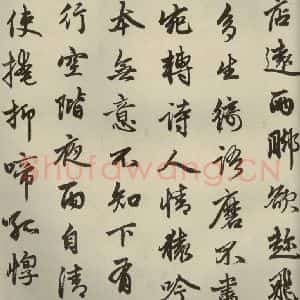 店遠兩脚欲趁飛
多生綺語磨不盡
宛轉詩人情猿吟
本無意不知下有
行空階夜雨自清
使掩抑啼孤惸
Shufawang.CN